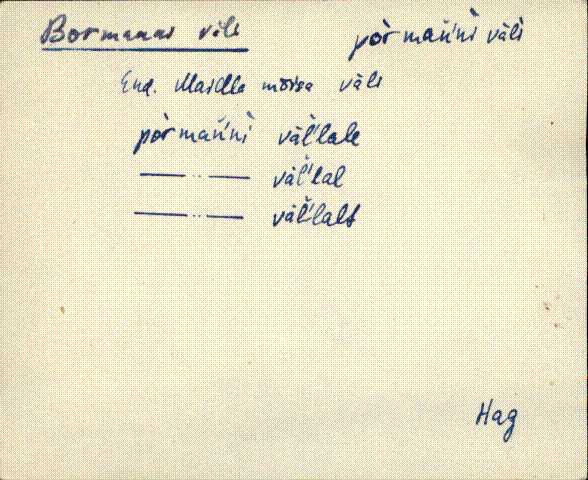 Bormanni väli pòrmań'ni väli
End. Maidla mõisa väli
pòrmań'ni väl'lale
— " — väl'lal
— " — väl'lalt
Hag